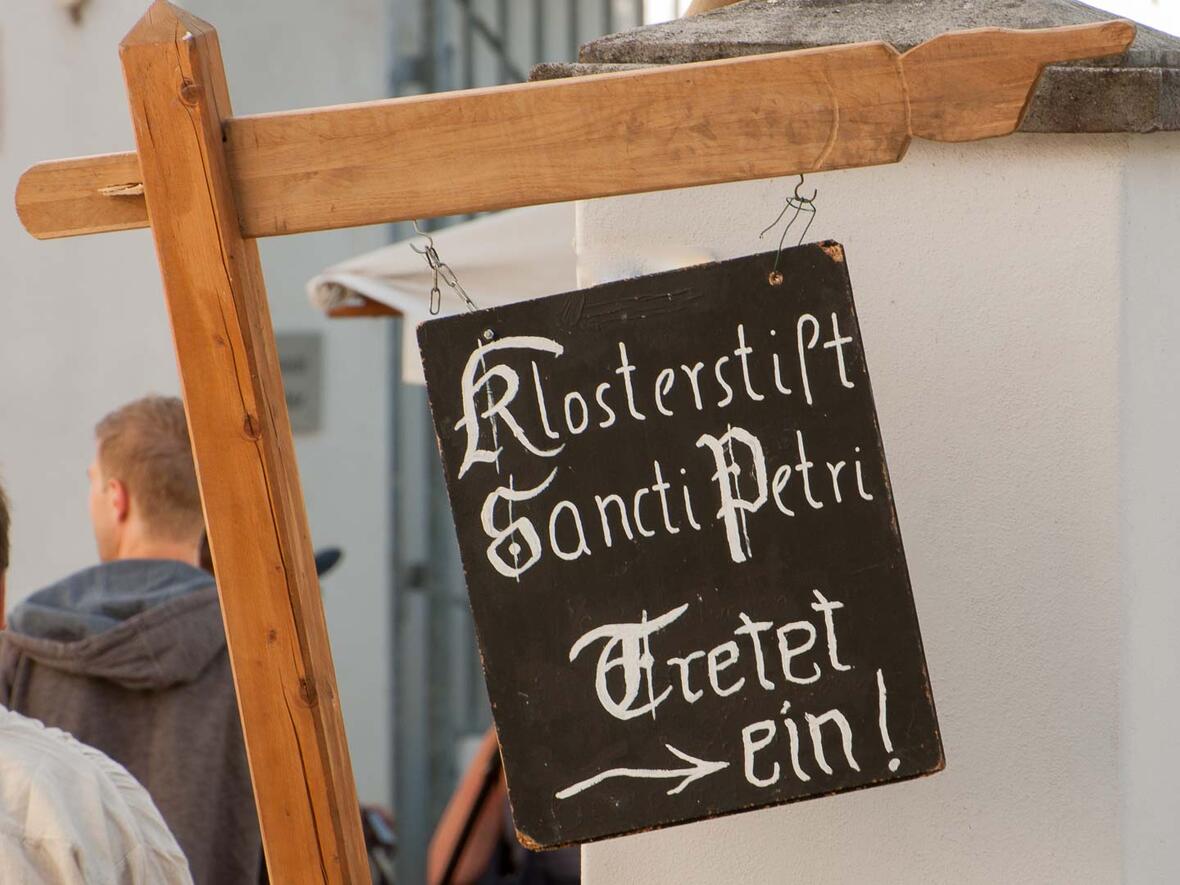 Klosterstift
Sancti Petri
Tretet
ein!